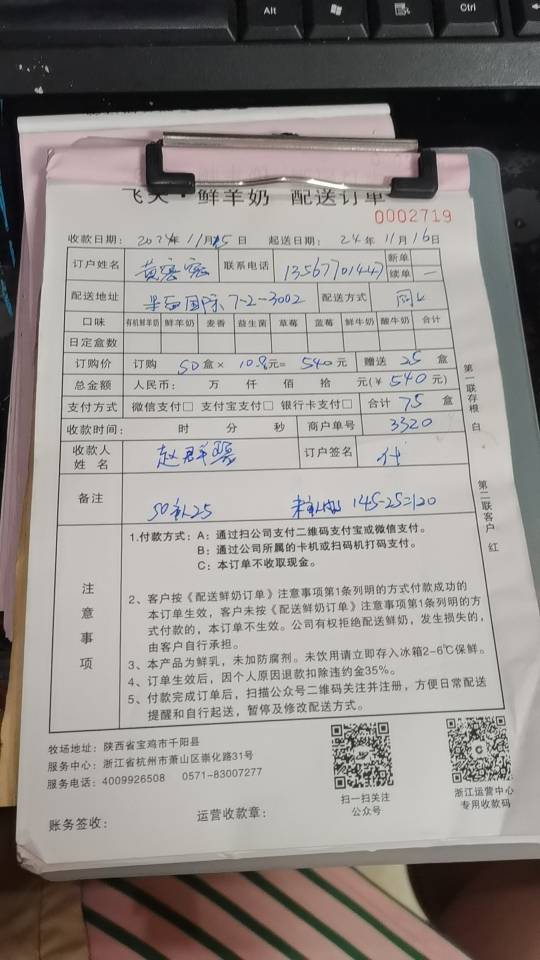 Alt
Ctrl
飞天·鲜羊奶 配送订单
0002719
收款日期: 2024年11月15日 起送日期: 24年11月16日
订户姓名 联系电话 13567701447 新单
续单 一
配送地址 国际7-2-3002 配送方式
口味 有机鲜羊奶 鲜羊奶 麦香 益生菌 草莓 蓝莓 鲜牛奶 酸牛奶 合计
日定盒数
订购价 订购 50 盒× 10.8元= 540元 赠送 25 盒
总金额 人民币: 万 仟 佰 拾 元(¥ 540元)
支付方式 微信支付□ 支付宝支付□ 银行卡支付□ 合计 75 盒
收款时间: 时 分 秒 商户单号 3320
收款人姓名 赵群 订户签名 付
备注 50 25 145-25=120
第一联存根 白
第二联客户 红
注意事项
1.付款方式: A: 通过扫公司支付二维码支付宝或微信支付。
B: 通过公司所属的卡机或扫码机打码支付。
C: 本订单不收取现金。
2、客户按《配送鲜奶订单》注意事项第1条列明的方式付款成功的
本订单生效，客户未按《配送鲜奶订单》注意事项第1条列明的方
式付款的，本订单不生效。公司有权拒绝配送鲜奶，发生损失的，
由客户自行承担。
3、本产品为鲜乳，未加防腐剂。未饮用请立即存入冰箱2-6℃保鲜。
4、订单生效后，因个人原因退款扣除违约金35%。
5、付款完成订单后，扫描公众号二维码关注并注册，方便日常配送
提醒和自行起送，暂停及修改配送方式。
牧场地址: 陕西省宝鸡市千阳县
服务中心: 浙江省杭州市萧山区崇化路31号
服务电话: 4009926508 0571-83007277
扫一扫关注
公众号
浙江运营中心
专用收款码
账务签收: 运营收款章: